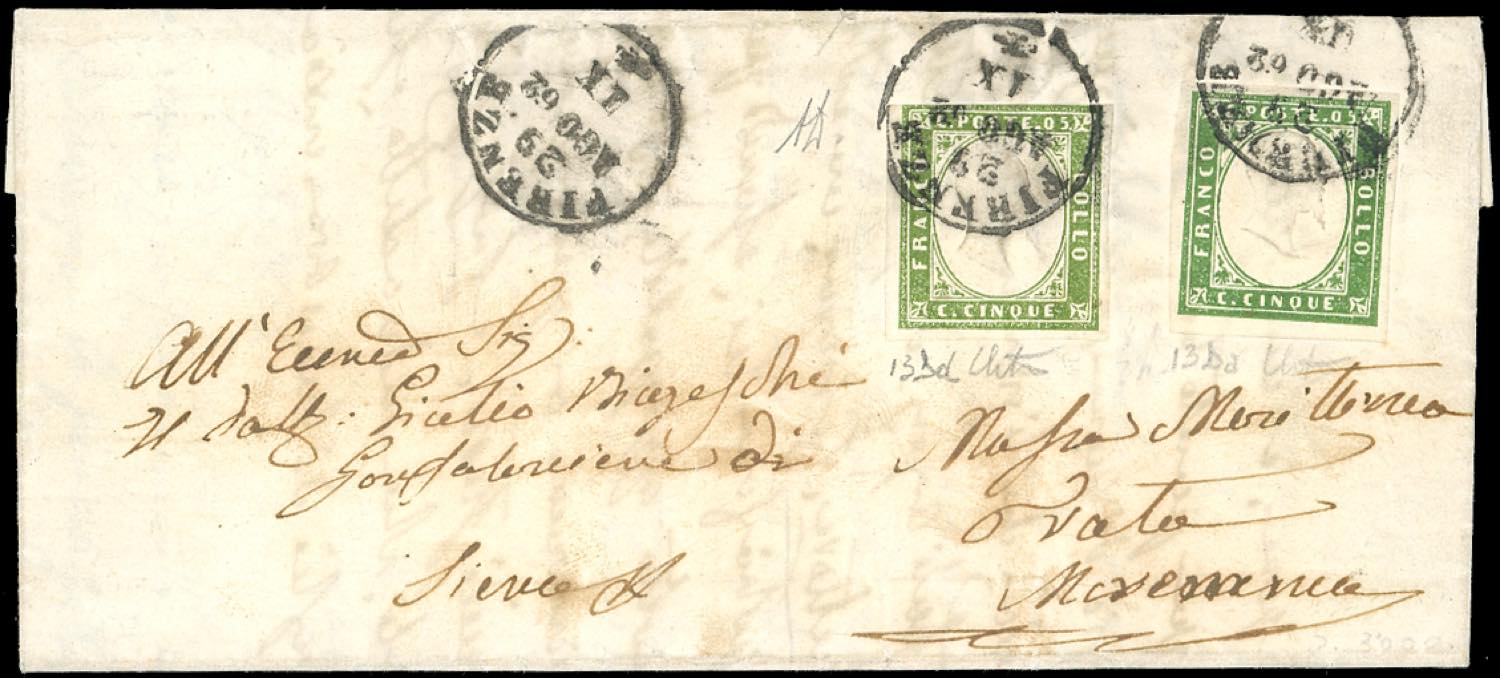 FIRENZE
29
AGO 62
IX
FIRENZE
29
AGO 62
IX
FIRENZE
29
AGO 62
IX
POSTE.05
FRANCO
BOLLO
C. CINQUE
POSTE.05
FRANCO
BOLLO
C. CINQUE
13Dd
13Dd
All' Sig
Il Dott: Giulio
Gonfaloniere di Massa Marittima
Siena Prata
Maremma